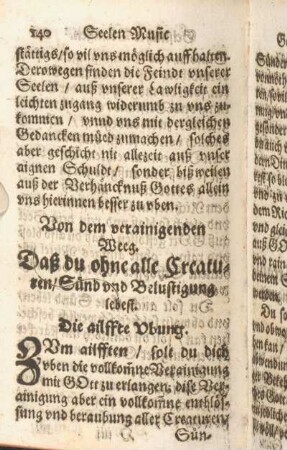 240 Seelen Music
stättigs / so vil vns möglich auff halten.
Derowegen finden die Feinde vnserer
Seelen / auß vnserer Lawligkeit ein
leichten zugang widerumb zu vns zu-
kommen / vnnd vns mit dergleichen
Gedancken müed zumachen / solches
aber geschicht nit allezeit auß vnser
aignen Schuldt / sonder bißweilen
auß der Verhäncknuß Gottes allein
vns hierinnen besser zu vben.
Von dem verainigenden
Weeg.
Daß du ohne alle Creatu-
ren / Sünd vnd Belustigung
lebest.
Die ailffte Vbung.
ZVm ailfften / solt du dich
vben die vollkom̄ne Verainigung
mit GOtt zu erlangen: dise Ver-
ainigung aber ein vollkom̄ne entblös-
sung vnd beraubung aller Creaturen /
Sün-